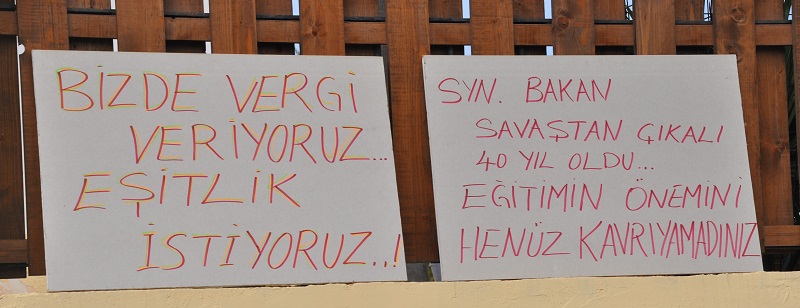 BİZDE VERGİ
VERİYORUZ...
EŞİTLİK
İSTİYORUZ..!
SYN. BAKAN
SAVAŞTAN ÇIKALI
40 YIL OLDU...
EĞİTİMİN ÖNEMİNİ
HENÜZ KAVRIYAMADINIZ